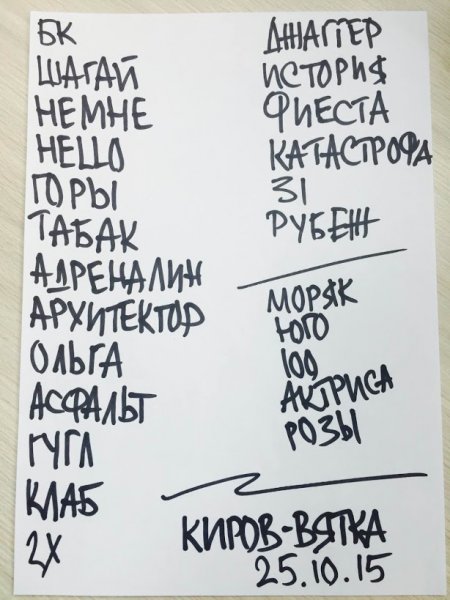 БК
ШАГАЙ
НЕМНЕ
НЕЦО
ГОРЫ
ТАБАК
АДРЕНАЛИН
АРХИТЕКТОР
ОЛЬГА
АСФАЛЬТ
ГУГЛ
КЛАБ
2Х
ДЖАГГЕР
ИСТОРИЯ
ФИЕСТА
КАТАСТРОФА
31
РУБЕЖ
МОРЯК
ЮГО
100
АКТРИСА
РОЗЫ
КИРОВ-ВЯТКА
25.10.15